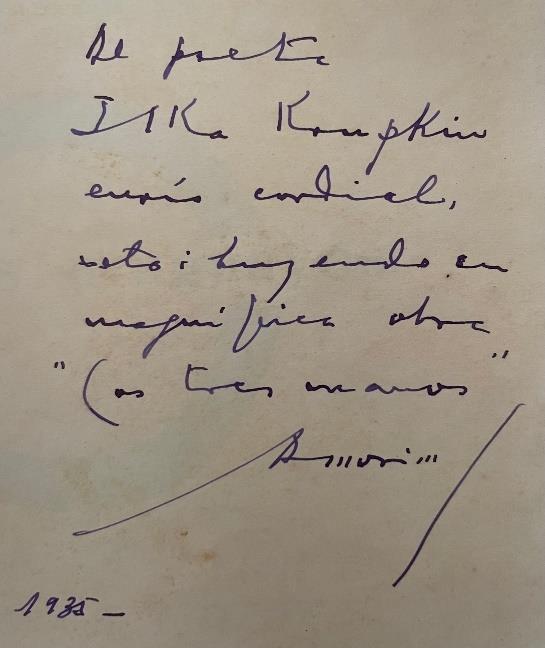 Al poeta
Ilka Krupkin
envío cordial,
retribuyendo su
magnífica obra
"Las tres manos"
Amorim
1935 —